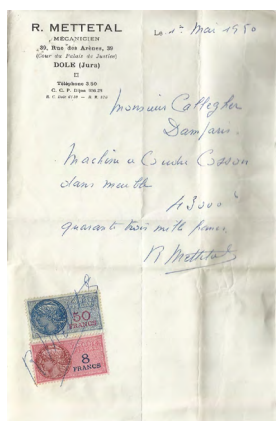 R. METTETAL
MÉCANICIEN
39, Rue des Arènes, 39
(Cour du Palais de Justice)
DOLE (Jura)
Téléphone 3 50
C. C. P. Dijon
Le 1er Mai 1950
Monsieur
Damparis
Machine a Coudre Cosson
dans meuble
43000 f
quarante trois mille francs
R Mettetal
50
FRANCS
8
FRANCS